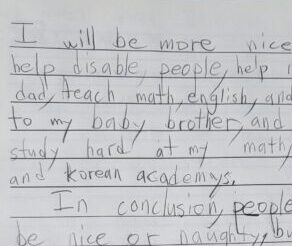 I will be more nice
help disable people, help
dad, teach math, english, and
to my baby brother, and
study hard at my math,
and korean academys.
In conclusion, people
be nice or naughty, bu